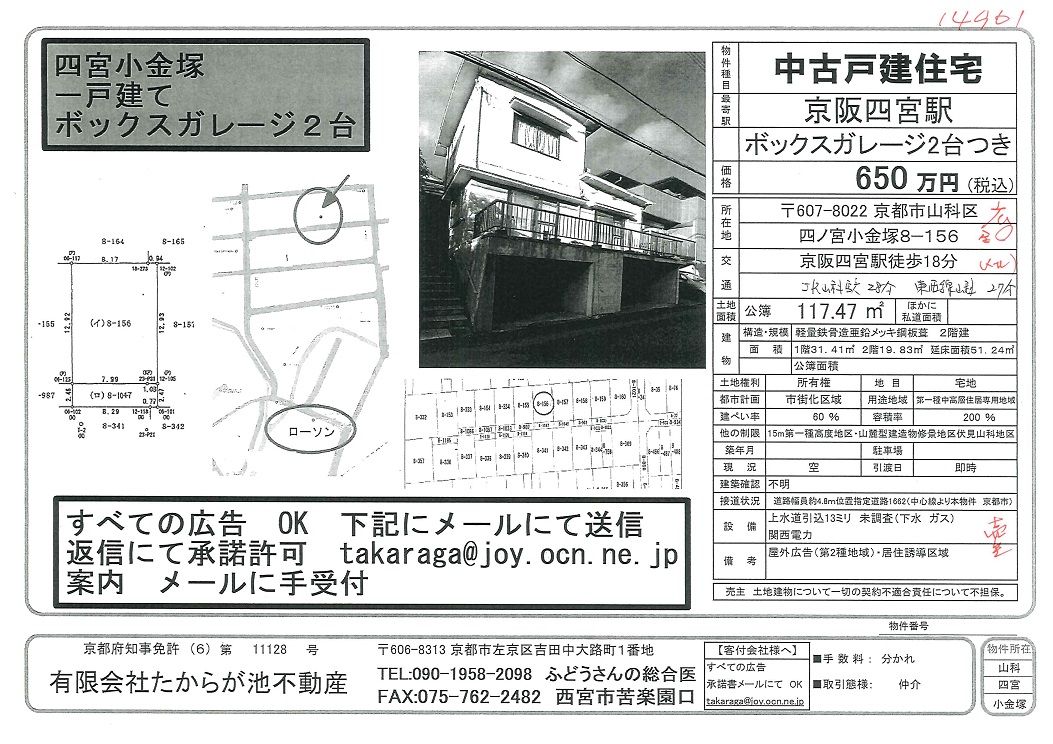 14961
四宮小金塚
一戸建て
ボックスガレージ2台
8-164
8-165
8.17
0.94
06-117
18-273
12-102
12.92
(イ)8-156
12.93
-155
8-157
7.99
1.03
2.46
(ロ)8-1047
0.77
2.47
-987
8.29
8-341
8-342
ローソン
8-156
物件種目
中古戸建住宅
最寄駅
京阪四宮駅
ボックスガレージ2台つき
価格
650 万円 (税込)
所在地
〒607-8022 京都市山科区
四ノ宮小金塚8-156
交通
京阪四宮駅徒歩18分
JR山科駅 28分
27分
土地面積
公簿
117.47 ㎡
ほかに私道面積
建物
構造・規模
軽量鉄骨造亜鉛メッキ鋼板葺 2階建
面 積
1階31.41㎡ 2階19.83㎡ 延床面積51.24㎡
公簿面積
土地権利
所有権
地 目
宅地
都市計画
市街化区域
用途地域
第一種中高層住居専用地域
建ぺい率
60 %
容積率
200 %
他の制限
15m第一種高度地区・山麓型建造物修景地区伏見山科地区
築年月
駐車場
現 況
空
引渡日
即時
建築確認
不明
接道状況
道路幅員約4.8m位置指定道路1662(中心線より本物件 京都市)
設 備
上水道引込13ミリ 未調査(下水 ガス)
関西電力
備 考
屋外広告(第2種地域)・居住誘導区域
売主 土地建物について一切の契約不適合責任について不担保。
すべての広告 OK 下記にメールにて送信
返信にて承諾許可 takaraga@joy.ocn.ne.jp
案内 メールに手受付
物件番号
京都府知事免許 (6) 第 11128 号
有限会社たからが池不動産
〒606-8313 京都市左京区吉田中大路町1番地
TEL:090-1958-2098 ふどうさんの総合医
FAX:075-762-2482 西宮市苦楽園口
【客付会社様へ】
すべての広告
承諾書メールにて OK
takaraga@joy.ocn.ne.jp
■手 数 料: 分かれ
■取引態様: 仲介
物件所在
山科
四宮
小金塚